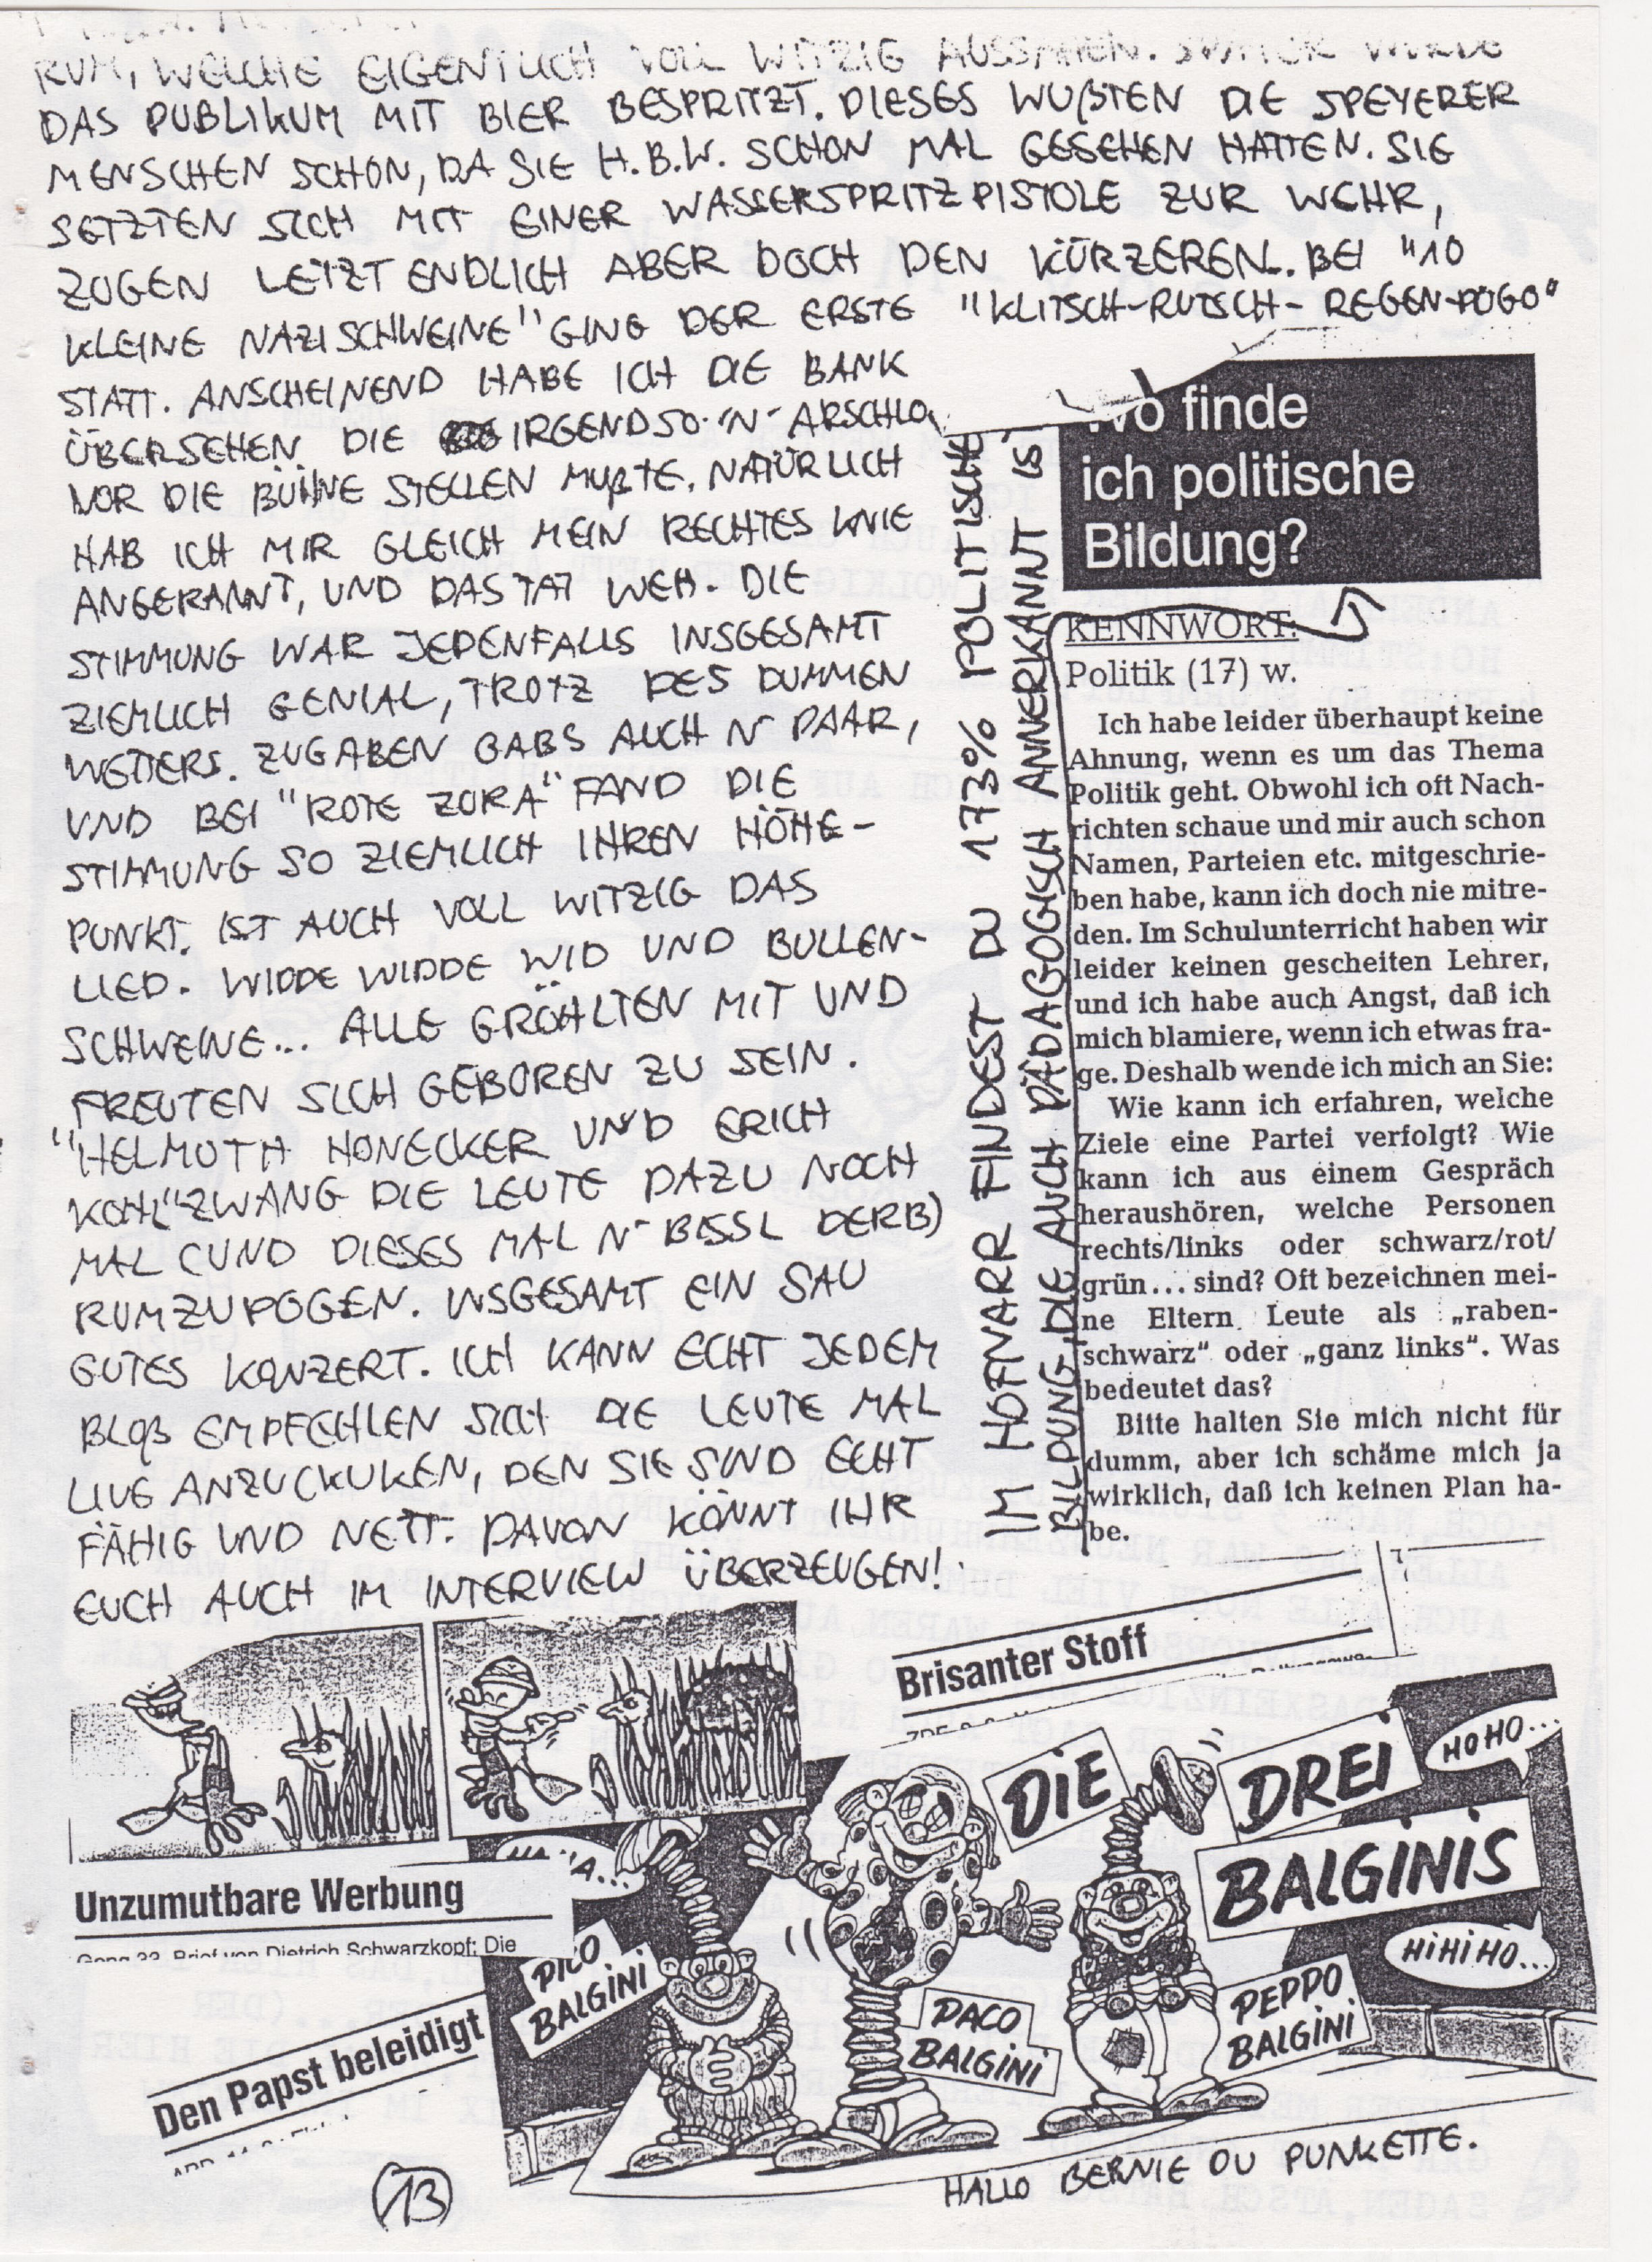 RUM, WELCHE EIGENTLICH VOLL WITZIG AUSSAHEN. SPÄTER WURDE
DAS PUBLIKUM MIT BIER BESPRITZT. DIESES WUßTEN DIE SPEYERER
MENSCHEN SCHON, DA SIE H.B.W. SCHON MAL GESEHEN HATTEN. SIE
SETZTEN SICH MIT EINER WASSERSPRITZPISTOLE ZUR WEHR,
ZOGEN LETZTENDLICH ABER DOCH DEN KÜRZEREN. BEI "10
KLEINE NAZISCHWEINE" GING DER ERSTE "KLITSCH-RUTSCH-REGEN-POGO"
STATT. ANSCHEINEND HABE ICH DIE BANK
ÜBERSEHEN DIE IRGENDSO 'N' ARSCHLO
VOR DIE BÜHNE STELLEN MUßTE. NATÜRLICH
HAB ICH MIR GLEICH MEIN RECHTES KNIE
ANGERANNT, UND DAS TAT WEH. DIE
STIMMUNG WAR JEDENFALLS INSGESAMT
ZIEMLICH GENIAL, TROTZ DES DUMMEN
WETTERS. ZUGABEN GABS AUCH N' PAAR,
UND BEI "ROTE ZORA" FAND DIE
STIMMUNG SO ZIEMLICH IHREN HÖHE-
PUNKT. IST AUCH VOLL WITZIG DAS
LIED. WIDDE WIDDE WID UND BULLEN-
SCHWEINE... ALLE GRÖHLTEN MIT UND
FREUTEN SICH GEBOREN ZU SEIN.
"HELMUTH HONECKER UND ERICH
KOHL" ZWANG DIE LEUTE DAZU NOCH
MAL (UND DIESES MAL N' BISSL DERB)
RUMZUPOGEN. INSGESAMT EIN SAU
GUTES KONZERT. ICH KANN ECHT JEDEM
BLOß EMPFEHLEN SICH DIE LEUTE MAL
LIVE ANZUCKUKEN, DEN SIE SIND ECHT
FÄHIG UND NETT. DAVON KÖNNT IHR
EUCH AUCH IM INTERVIEW ÜBERZEUGEN!
IM HOFNARR FINDEST DU 173% POLITISCHE
BILDUNG DIE AUCH PÄDAGOGISCH ANNERKANNT IST
Wo finde
ich politische
Bildung?
KENNWORT:
Politik (17) w.
Ich habe leider überhaupt keine
Ahnung, wenn es um das Thema
Politik geht. Obwohl ich oft Nach-
richten schaue und mir auch schon
Namen, Parteien etc. mitgeschrie-
ben habe, kann ich doch nie mitre-
den. Im Schulunterricht haben wir
leider keinen gescheiten Lehrer,
und ich habe auch Angst, daß ich
mich blamiere, wenn ich etwas fra-
ge. Deshalb wende ich mich an Sie:
Wie kann ich erfahren, welche
Ziele eine Partei verfolgt? Wie
kann ich aus einem Gespräch
heraushören, welche Personen
rechts/links oder schwarz/rot/
grün... sind? Oft bezeichnen mei-
ne Eltern Leute als „raben-
schwarz“ oder „ganz links“. Was
bedeutet das?
Bitte halten Sie mich nicht für
dumm, aber ich schäme mich ja
wirklich, daß ich keinen Plan ha-
be.
Brisanter Stoff
DIE DREI
BALGINIS
HOHO...
HIHIHO...
Unzumutbare Werbung
Gong 33, Brief von Dietrich Schwarzkopf: Die
PICO
BALGINI
PACO
BALGINI
PEPPO
BALGINI
Den Papst beleidigt
HALLO BERNIE OU PUNKETTE.
13